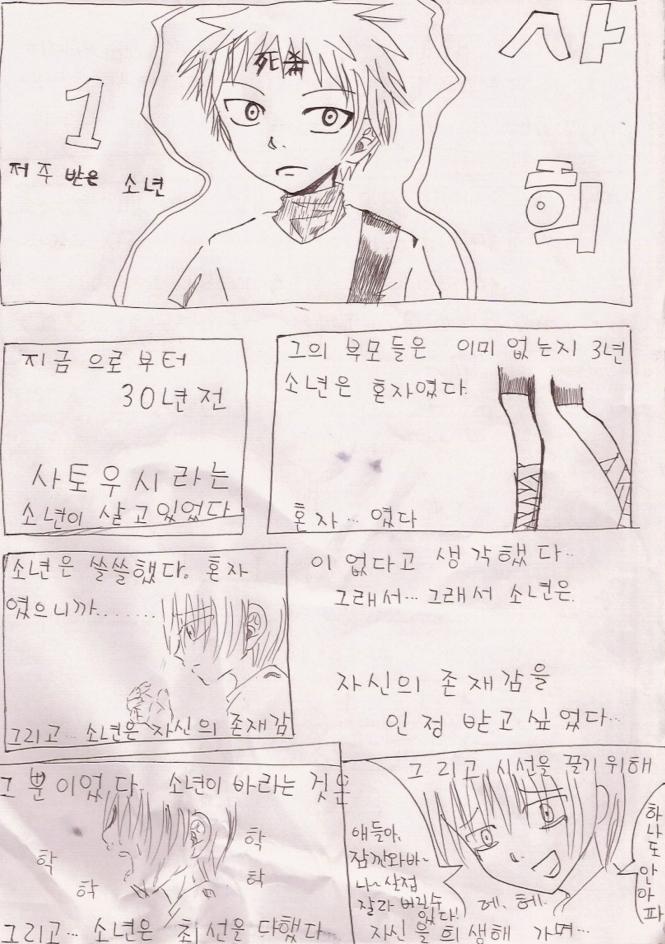 사
희
死杀
1
저주 받은 소년
지금으로부터
30년전
사토우시라는
소년이 살고있었다
그의 부모들은 이미 없는지 3년
소년은 혼자였다.
혼자… 였다
소년은 쓸쓸했다. 혼자
였으니까.......
그리고… 소년은 자신의 존재감
이 없다고 생각했다..
그래서… 그래서 소년은
자신의 존재감을
인정 받고 싶었다…
그 뿐이었다. 소년이 바라는 것은
학
학
학
학
그리고… 소년은 최선을 다했다…
그리고 시선을 끌기 위해
얘들아,
잠깐와바~
나~ 살점
잘라 버릴수
있다!
헤, 헤.
하나도 안아파
자신을 희생해 가며…